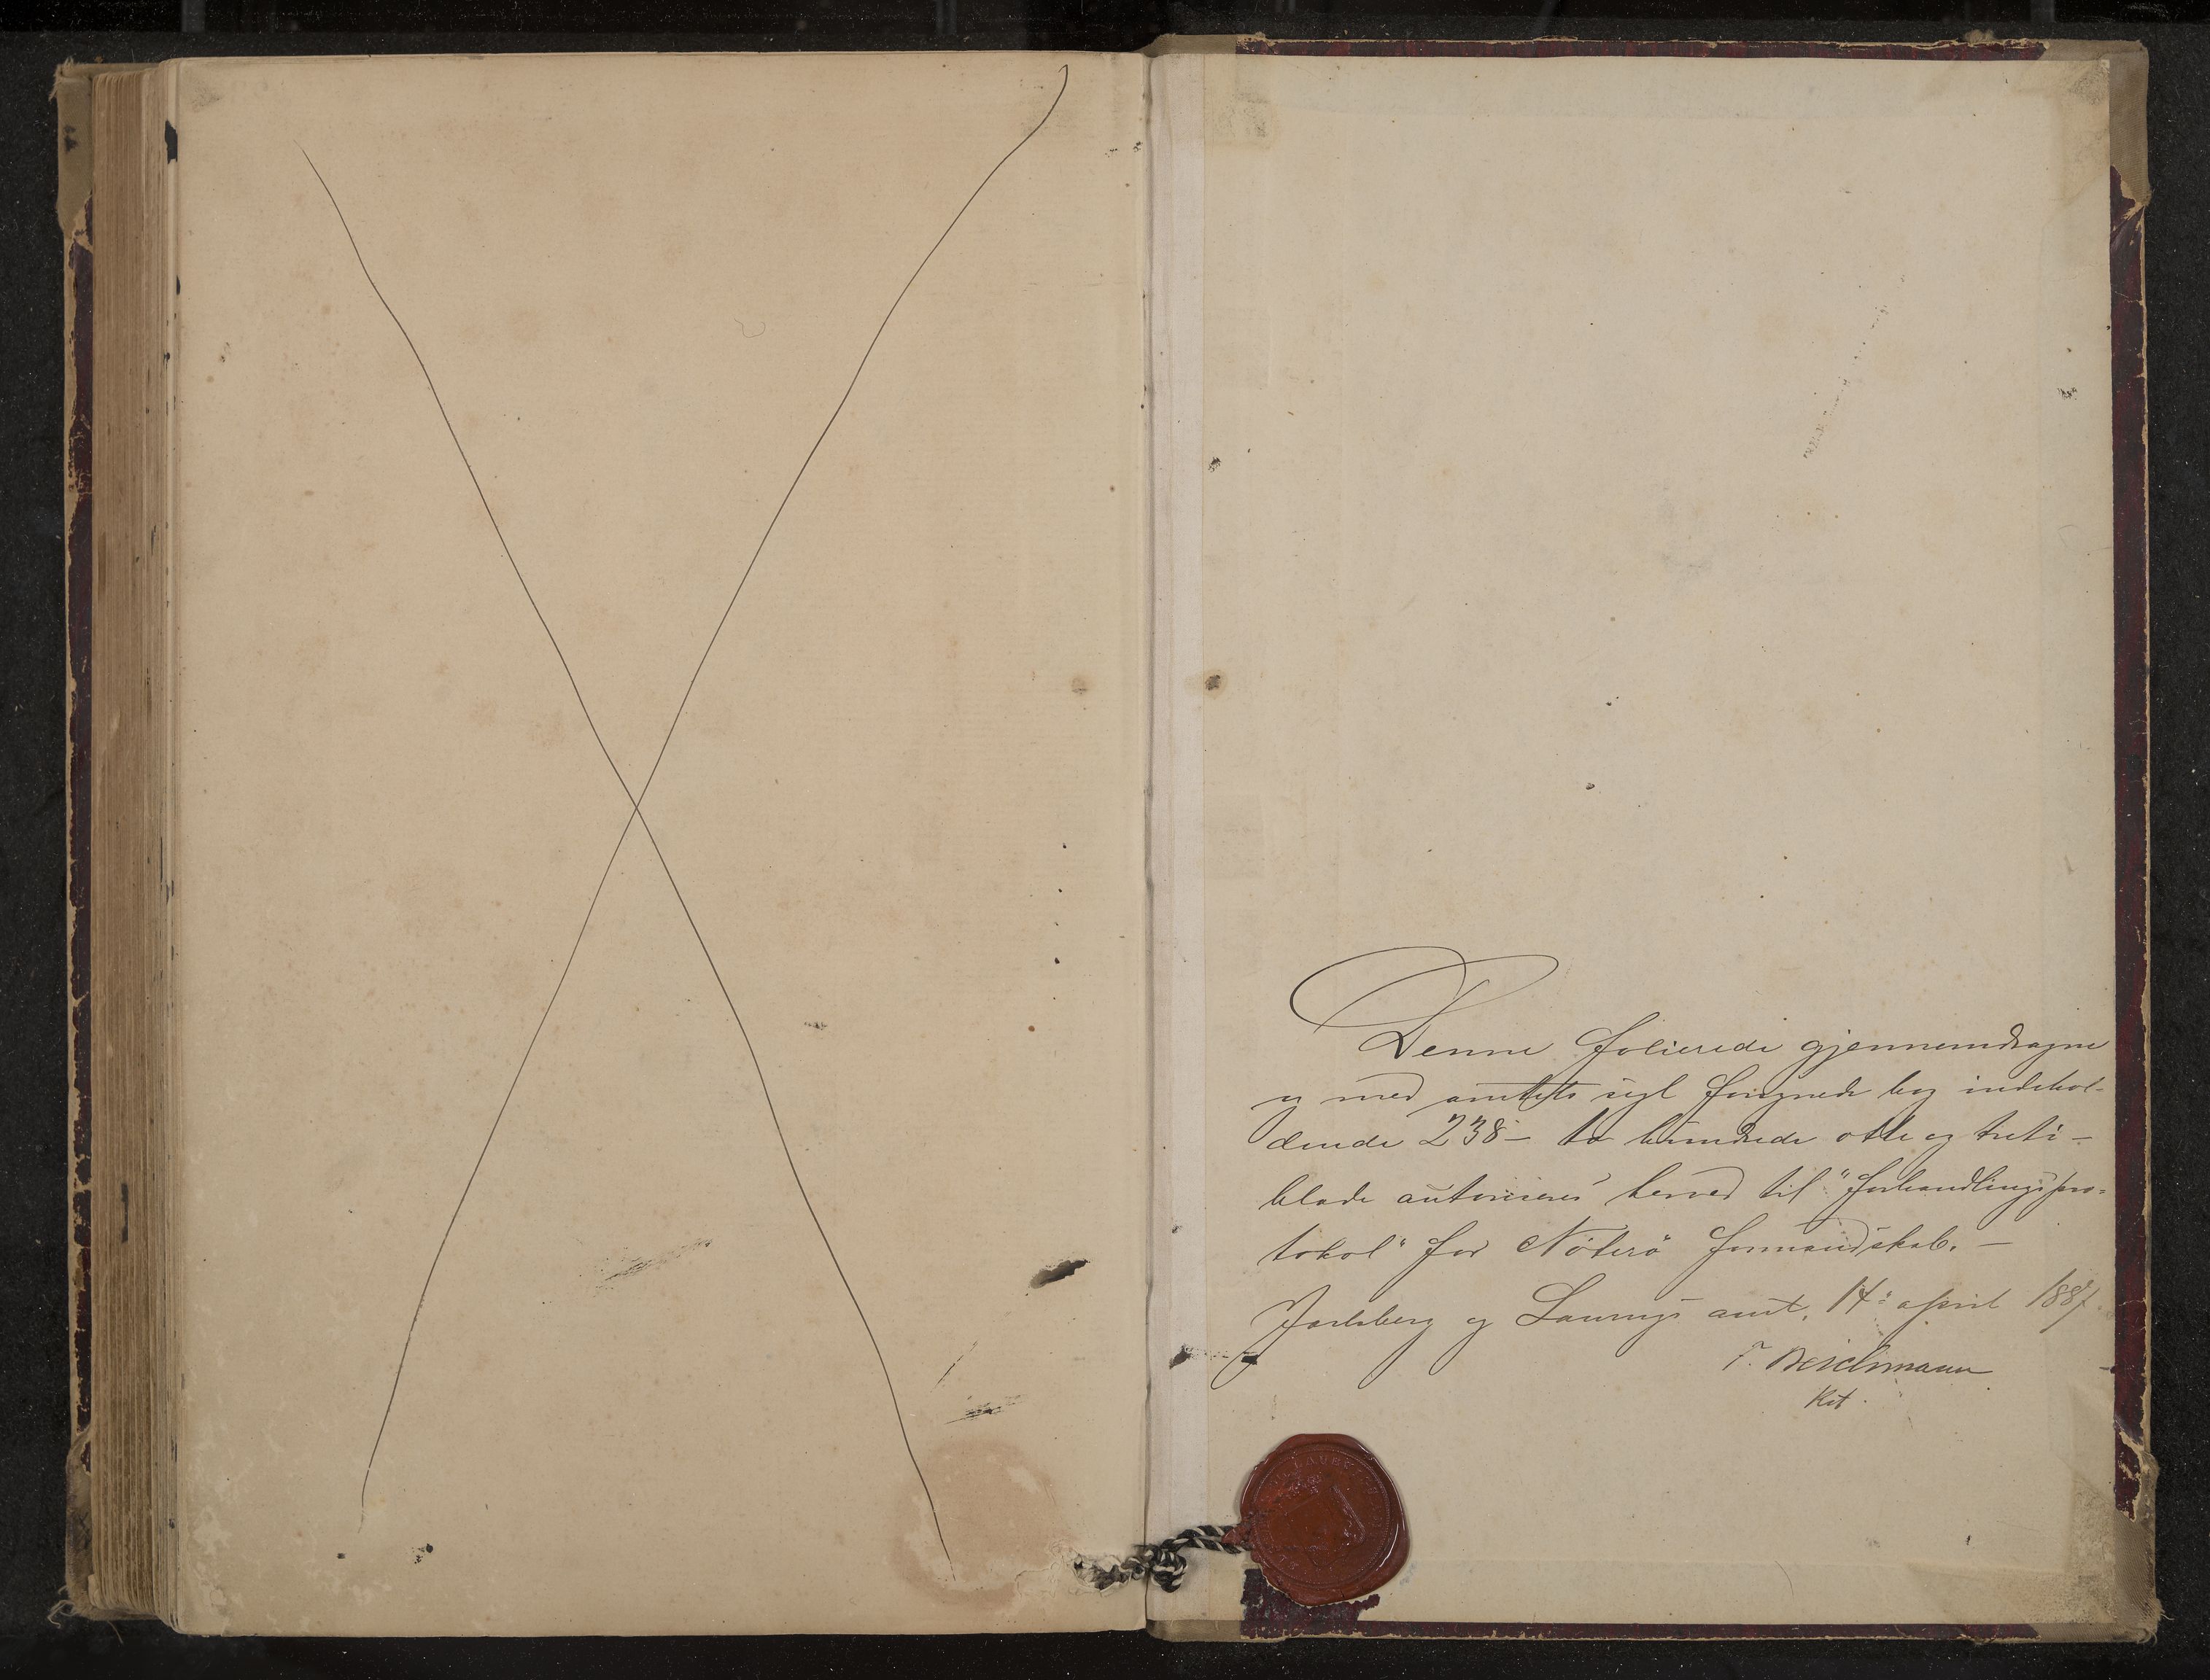 Denne folierede gjennemdragne
og med amtets segl forsynede bog indehol-
dende 238 – to hundrede otte og treti –
blade autoriseres herved til "forhandlingspro-
tokol" for Nøterø formandskab. –
Jarlsberg og Laurvigs amt, 14de april 1887.
T. Beichmann
Kst.